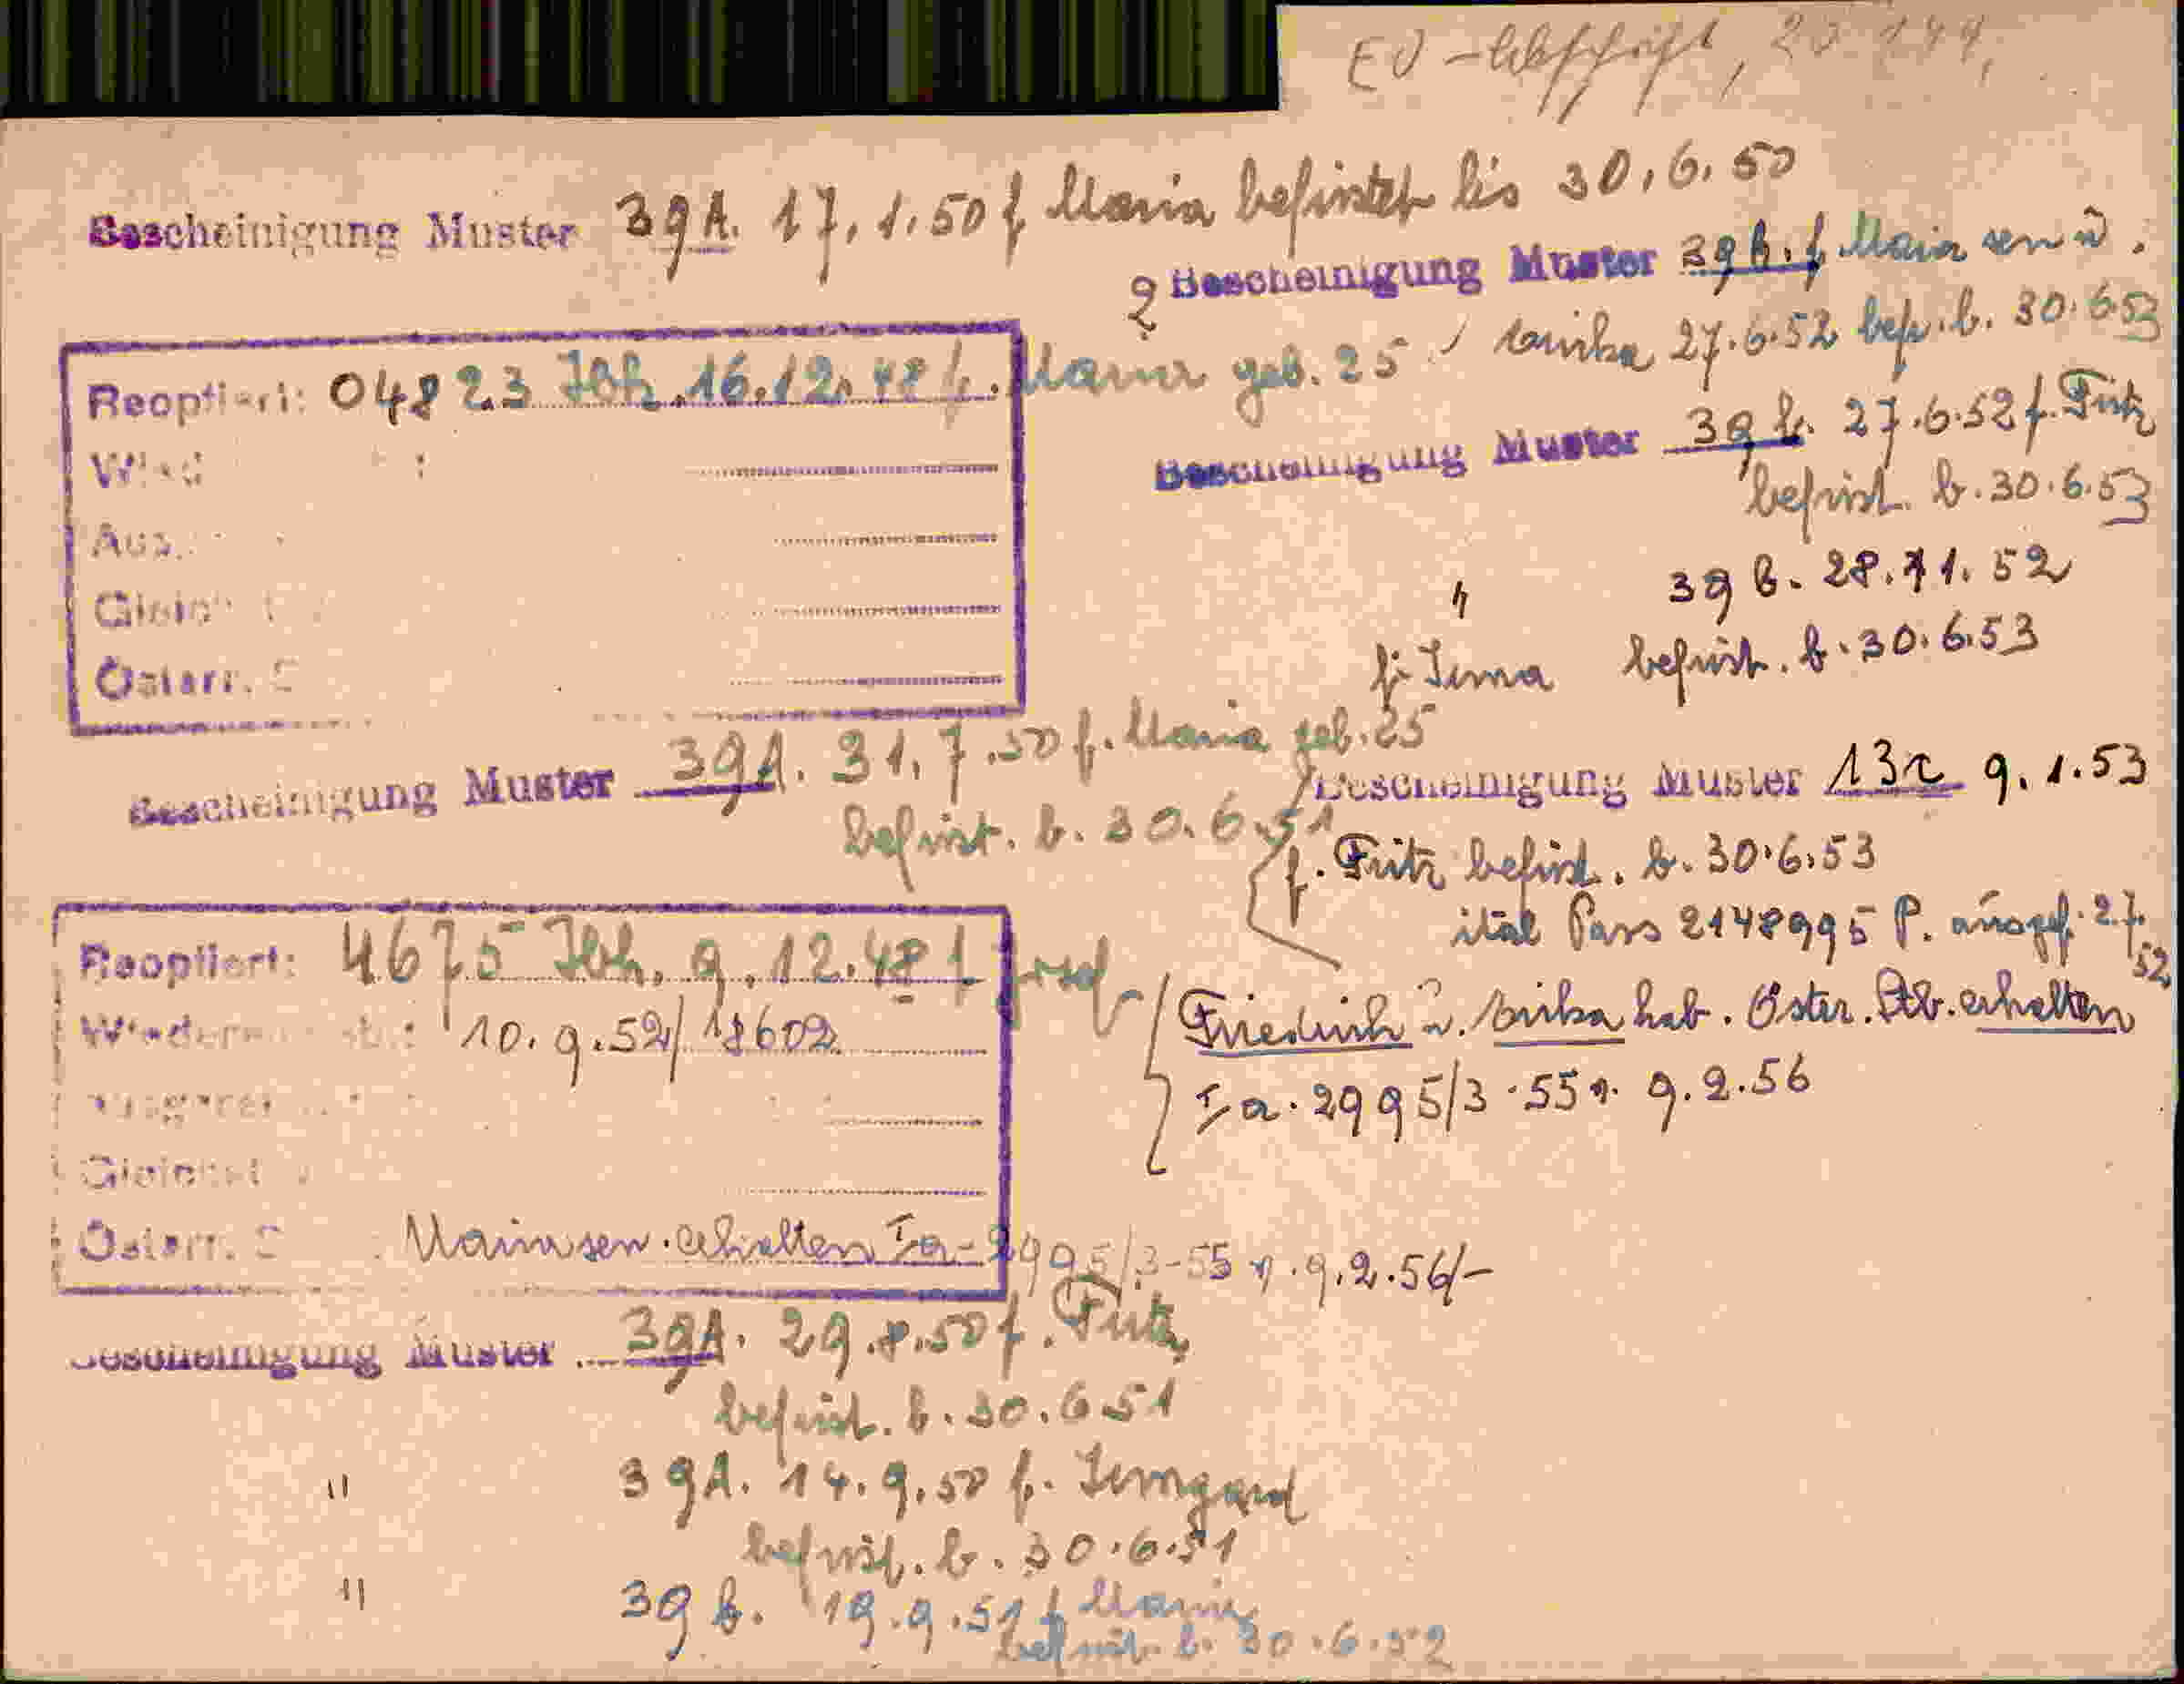 EV-Abschrift, 20 144,
Bescheinigung Muster 39A. 17.1.50 f Maria befristet bis 30.6.50
2 Bescheinigung Muster 39b. f Maria sen u.
Erika 27.6.52 befr. b. 30.6.53
Reoptiert: 04823 Jbk. 16.12.48 f. Maria geb. 25
Bescheinigung Muster 39b. 27.6.52 f. Fritz
befrist. b. 30.6.53
" 39b. 28.11.52
f. Irma befrist. b. 30.6.53
Österr.
Bescheinigung Muster 39A. 31.7.50 f. Maria geb. 25
befrist. b. 30.6.51
Bescheinigung Muster 13a 9.1.53
f. Fritz befrist. b. 30.6.53
ital Pass 2148995 P. ausgest. 27.
52
Reoptiert: 4675 Jbk. 9.12.48 f Josef
10.9.52/18602
Friedrich u. Erika hab. Öster. Stb. erhalten
Ia. 2995/3-55 v. 9.2.56
Österr. Maria sen. erhalten Ia-2995/3-55 v. 9.2.56/-
Bescheinigung Muster 39A. 29.8.50 f. Fritz
befrist. b. 30.6.51
" 39A. 14.9.50 f. Irmgard
befrist. b. 30.6.51
" 39b. 19.9.51 f Maria
befrist. b. 30.6.52